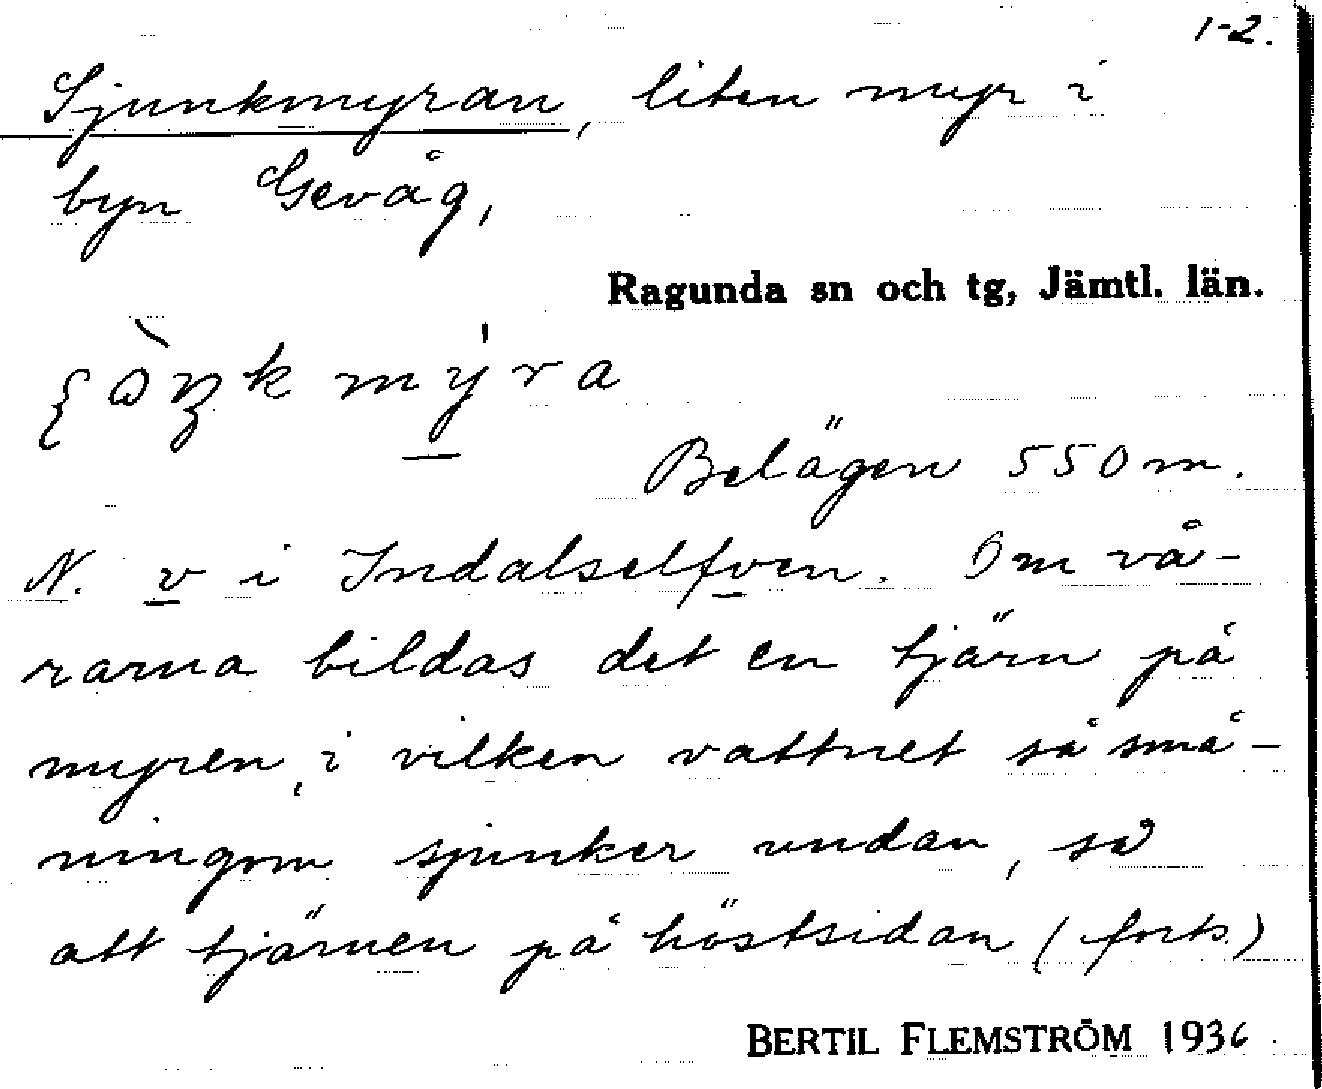 1-2.
Sjunkmyran, liten myr i
byn Gevåg,
Ragunda sn och tg, Jämtl. län.
Belägen 550 m.
N. v i Indalselfven. Om vå-
rarna bildas det en tjärn på
myren, i vilken vattnet så små-
ningom sjunker undan, så
att tjärnen på höstsidan (forts.)
BERTIL FLEMSTRÖM 1936